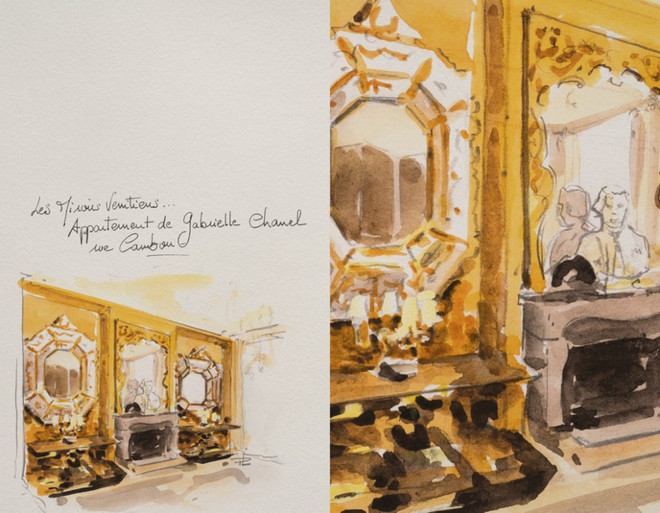 Les Miroirs Vénitiens...
Appartement de Gabrielle Chanel
rue Cambon